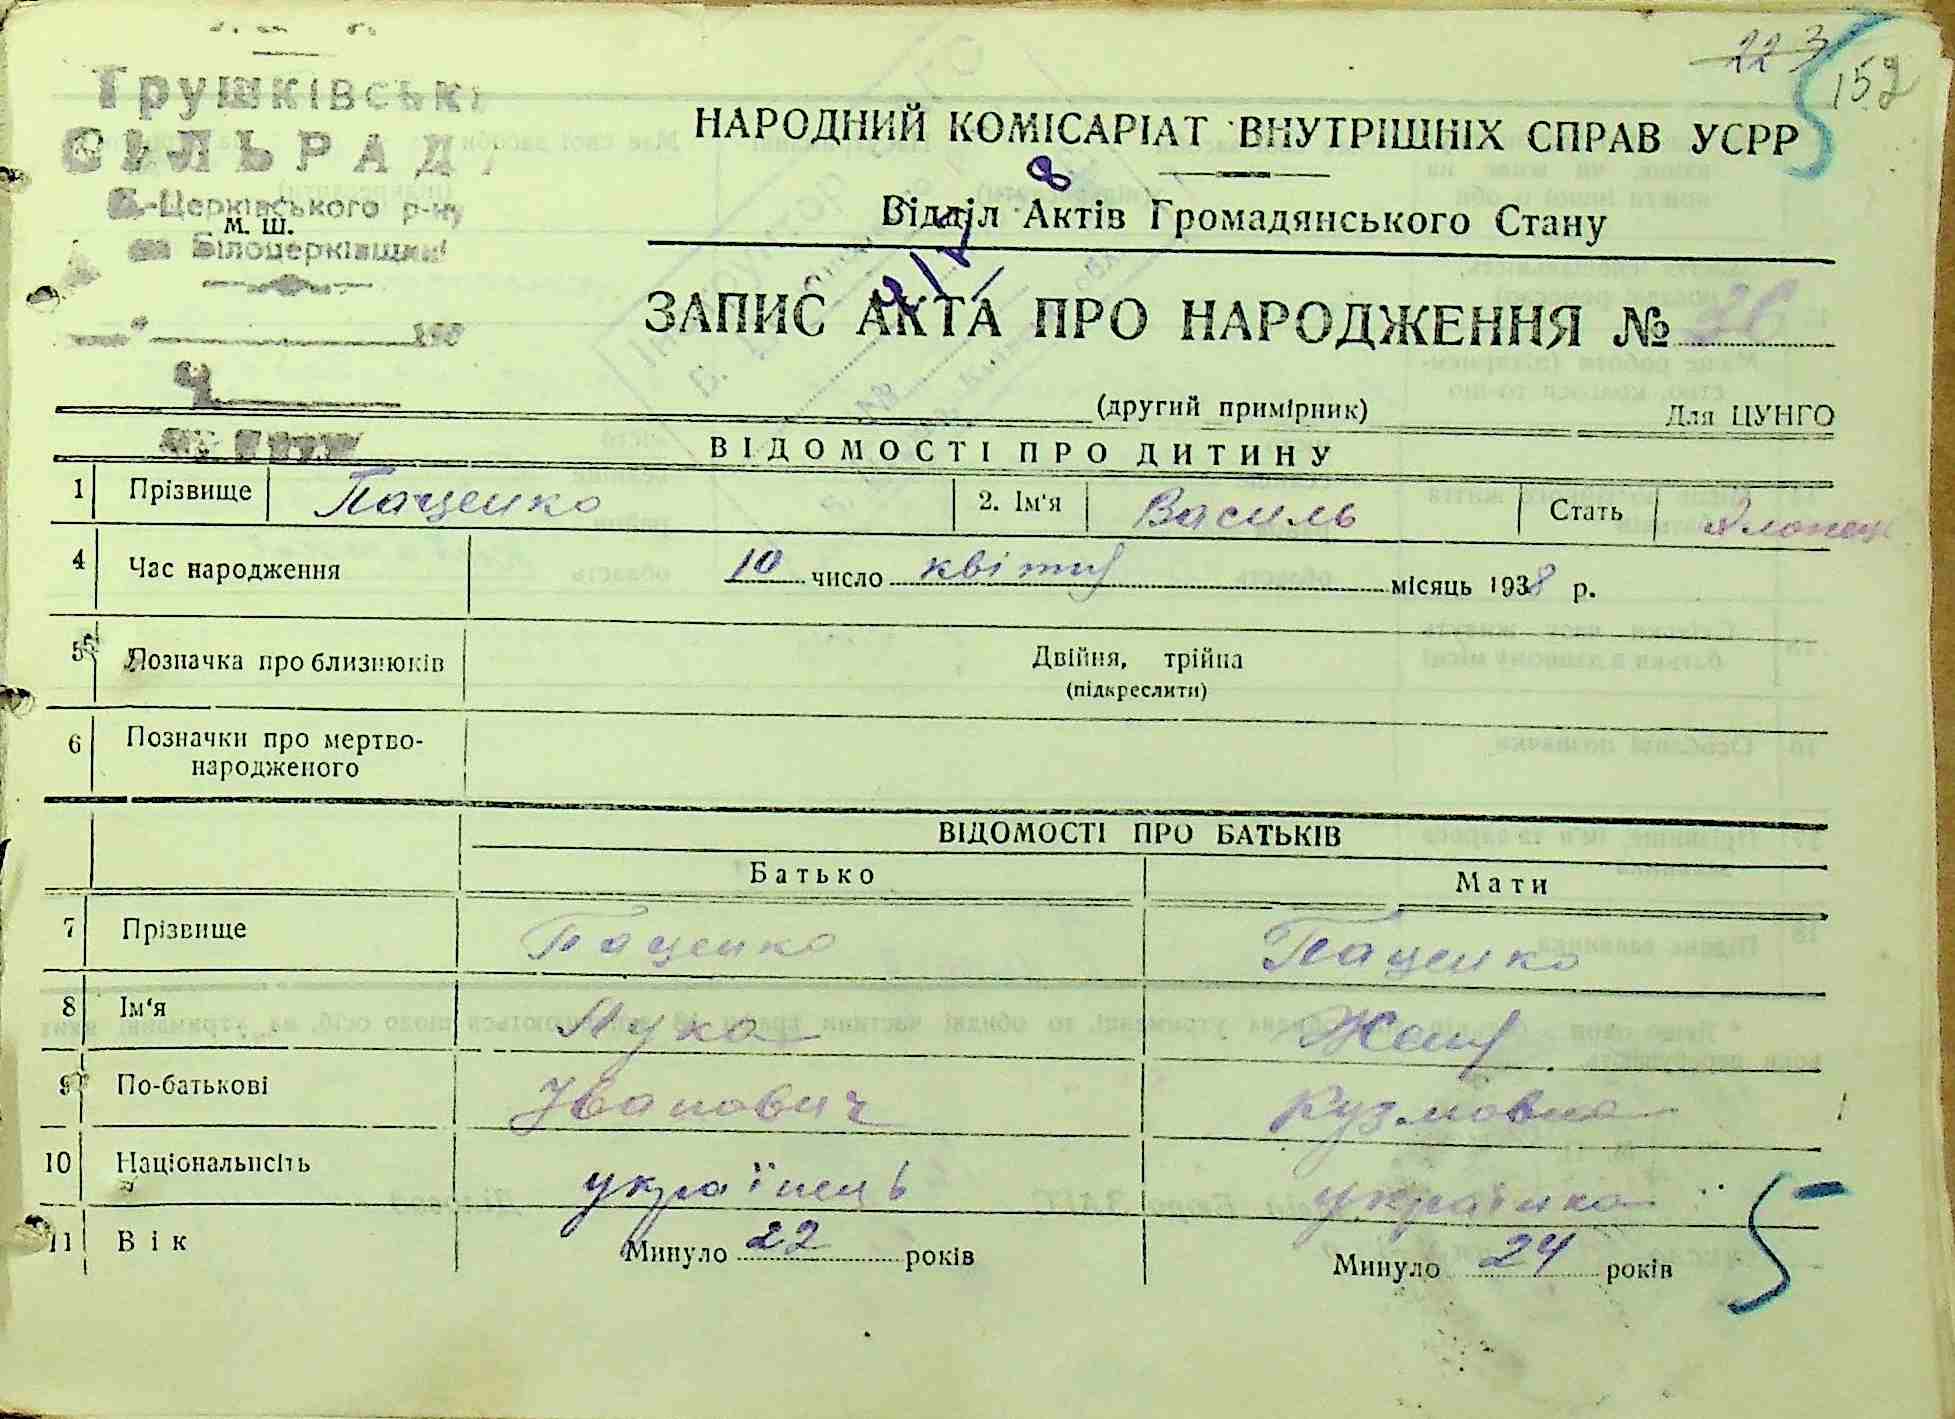 223
152
Трушківськ
СІЛЬРАДА
Б.-Церківського р-ну
М. Ш.
на Білоцерківщині
НАРОДНИЙ КОМІСАРІАТ ВНУТРІШНІХ СПРАВ УСРР
Відділ Актів Громадянського Стану
ЗАПИС АКТА ПРО НАРОДЖЕННЯ № 36
(другий примірник)
Для ЦУНГО
ВІДОМОСТІ ПРО ДИТИНУ
1 Прізвище Паценко 2. Ім'я Василь Стать Хлопець
4 Час народження 10 число квітня місяць 1938 р.
5 Позначка про близнюків Двійня, трійна
(підкреслити)
6 Позначки про мертво-
народженого
ВІДОМОСТІ ПРО БАТЬКІВ
Батько Мати
7 Прізвище Паценко Паценко
8 Ім'я Лука Женя
9 По-батькові Іванович Кузмовна
10 Національність українець українка
11 Вік Минуло 22 років Минуло 24 років
5